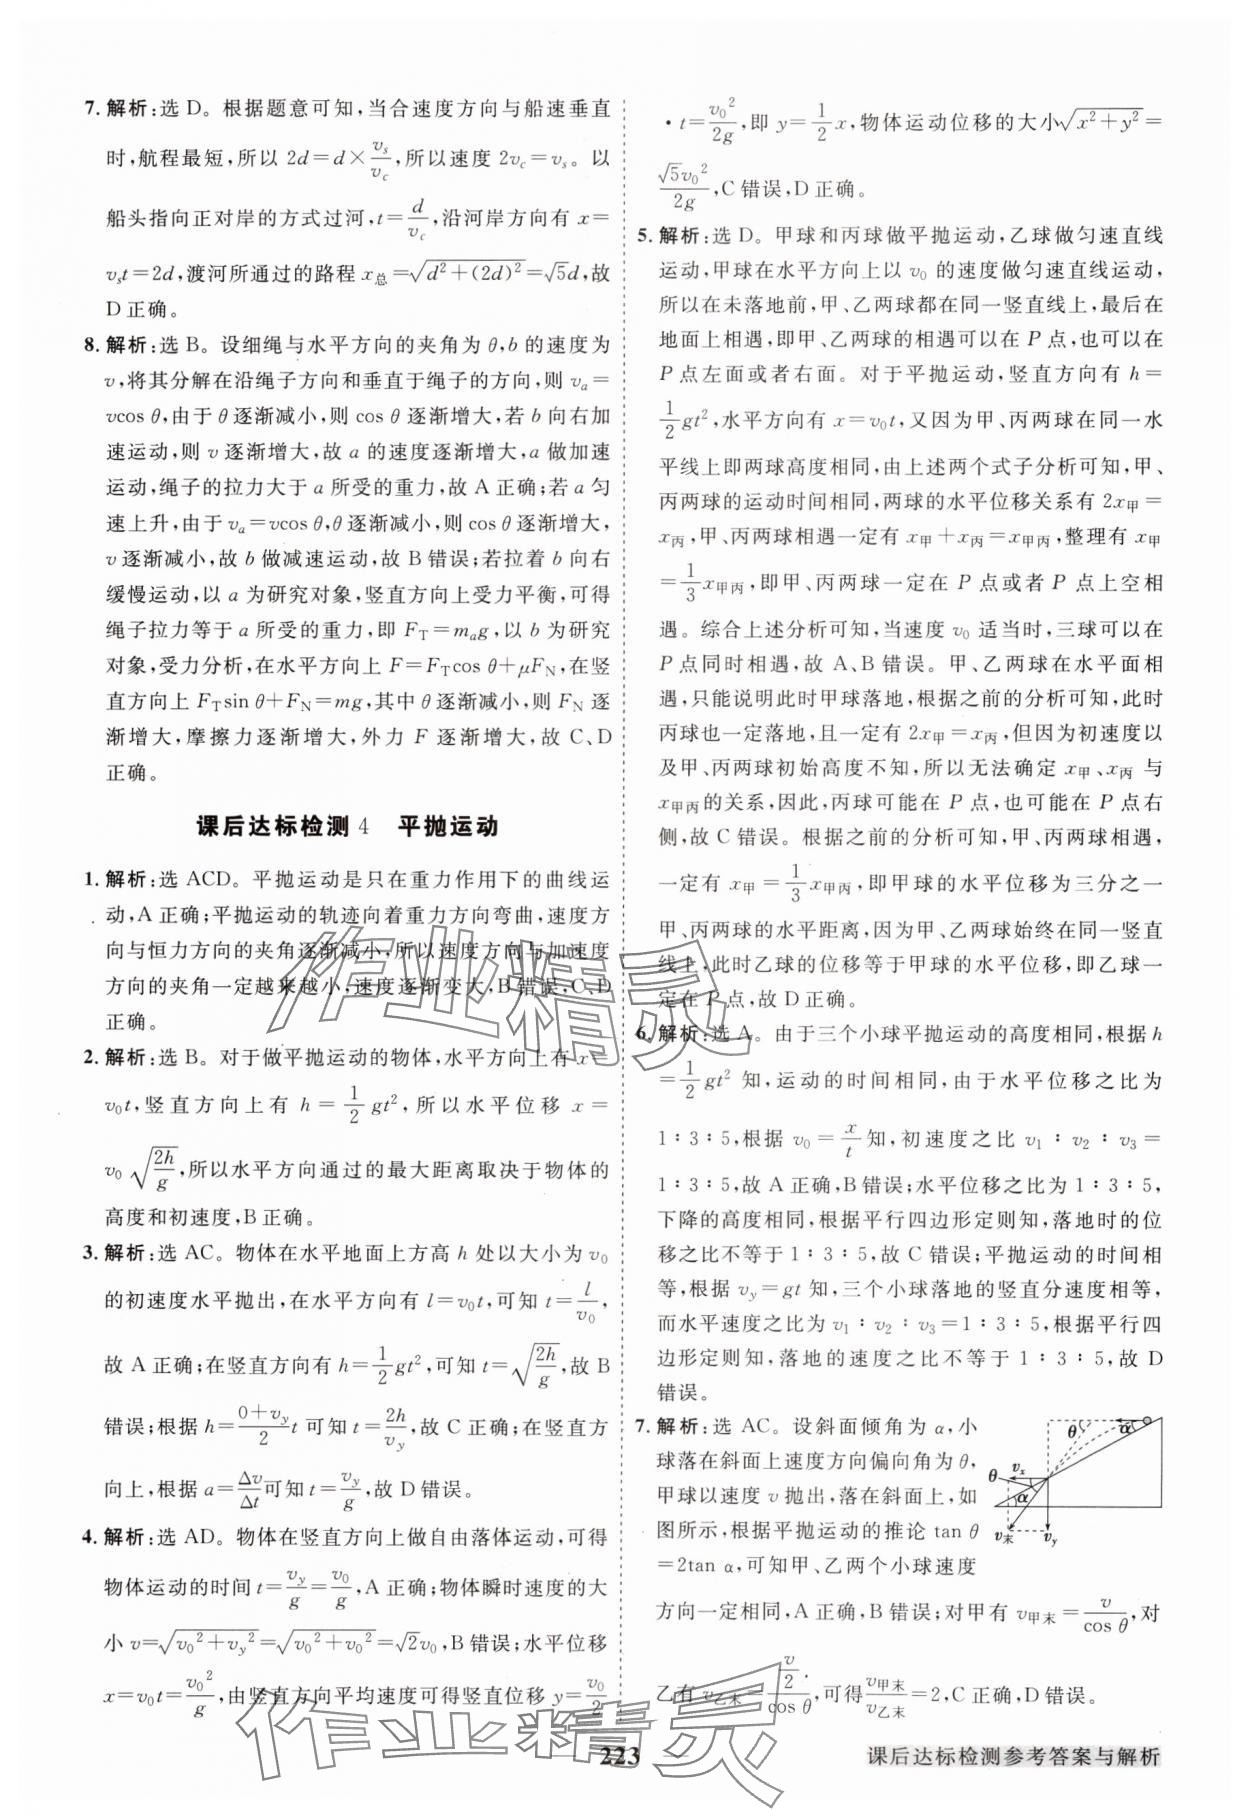 7. 解析:选 D。根据题意可知,当合速度方向与船速垂直
时,航程最短,所以 2d=d×v_s/v_c,所以速度 2v_c=v_s。以
船头指向正对岸的方式过河,t=d/v_c,沿河岸方向有 x=
v_s t=2d,渡河所通过的路程 x总=√(d²+(2d)²)=√5d,故
D 正确。
8. 解析:选 B。设细绳与水平方向的夹角为 θ,b 的速度为
v,将其分解在沿绳子方向和垂直于绳子的方向,则 v_a=
vcos θ,由于 θ 逐渐减小,则 cos θ 逐渐增大,若 b 向右加
速运动,则 v 逐渐增大,故 a 的速度逐渐增大,a 做加速
运动,绳子的拉力大于 a 所受的重力,故 A 正确;若 a 匀
速上升,由于 v_a=vcos θ,θ 逐渐减小,则 cos θ 逐渐增大,
v 逐渐减小,故 b 做减速运动,故 B 错误;若拉着 b 向右
缓慢运动,以 a 为研究对象,竖直方向上受力平衡,可得
绳子拉力等于 a 所受的重力,即 F_T=m_a g,以 b 为研究
对象,受力分析,在水平方向上 F=F_T cos θ+μF_N,在竖
直方向上 F_T sin θ+F_N=mg,其中 θ 逐渐减小,则 F_N 逐
渐增大,摩擦力逐渐增大,外力 F 逐渐增大,故 C、D
正确。
课后达标检测 4 平抛运动
1. 解析:选 ACD。平抛运动是只在重力作用下的曲线运
动,A 正确;平抛运动的轨迹向着重力方向弯曲,速度方
向与恒力方向的夹角逐渐减小,所以速度方向与加速度
方向的夹角一定越来越小,速度逐渐变大,B 错误,C、D
正确。
2. 解析:选 B。对于做平抛运动的物体,水平方向上有 x=
v₀t,竖直方向上有 h=1/2 gt²,所以水平位移 x=
v₀√(2h/g),所以水平方向通过的最大距离取决于物体的
高度和初速度,B 正确。
3. 解析:选 AC。物体在水平地面上方高 h 处以大小为 v₀
的初速度水平抛出,在水平方向有 l=v₀t,可知 t=l/v₀,
故 A 正确;在竖直方向有 h=1/2 gt²,可知 t=√(2h/g),故 B
错误;根据 h=(0+v_y)/2 t 可知 t=2h/v_y,故 C 正确;在竖直方
向上,根据 a=Δv/Δt可知 t=v_y/g,故 D 错误。
4. 解析:选 AD。物体在竖直方向上做自由落体运动,可得
物体运动的时间 t=v_y/g=v₀/g,A 正确;物体瞬时速度的大
小 v=√(v₀²+v_y²)=√(v₀²+v₀²)=√2v₀,B 错误;水平位移
x=v₀t=v₀²/g,由竖直方向平均速度可得竖直位移 y=v₀/2
·t=v₀²/2g,即 y=1/2 x,物体运动位移的大小√(x²+y²)=
√5v₀²/2g,C 错误,D 正确。
5. 解析:选 D。甲球和丙球做平抛运动,乙球做匀速直线
运动,甲球在水平方向上以 v₀ 的速度做匀速直线运动,
所以在未落地前,甲、乙两球都在同一竖直线上,最后在
地面上相遇,即甲、乙两球相遇可以在 P 点,也可以在
P 点左面或者右面。对于平抛运动,竖直方向有 h=
1/2 gt²,水平方向有 x=v₀t,又因为甲、丙两球在同一水
平线上即两球高度相同,由上述两个式子分析可知,甲、
丙两球的运动时间相同,两球的水平位移关系有 2x甲=
x丙,甲、丙两球相遇一定有 x甲+x丙=x甲丙,整理有 x甲
=1/3 x甲丙,即甲、丙两球一定在 P 点或者 P 点上空相
遇。综合上述分析可知,当速度 v₀ 适当时,三球可以在
P 点同时相遇,故 A、B 错误。甲、乙两球在水平面相
遇,只能说明此时甲球落地,根据之前的分析可知,此时
丙球也一定落地,且一定有 2x甲=x丙,但因为初速度以
及甲、丙两球初始高度不知,所以无法确定 x甲、x丙 与
x甲丙的关系,因此,丙球可能在 P 点,也可能在 P 点右
侧,故 C 错误。根据之前的分析可知,甲、丙两球相遇,
一定有 x甲=1/3 x甲丙,即甲球的水平位移为三分之一
甲、丙两球的水平距离,因为甲、乙两球始终在同一竖直
线上,此时乙球的位移等于甲球的水平位移,即乙球一
定在 P 点,故 D 正确。
6. 解析:选 A。由于三个小球平抛运动的高度相同,根据 h
=1/2 gt² 知,运动的时间相同,由于水平位移之比为
1∶3∶5,根据 v₀=x/t 知,初速度之比 v₁∶v₂∶v₃=
1∶3∶5,故 A 正确,B 错误;水平位移之比为 1∶3∶5,
下降的高度相同,根据平行四边形定则知,落地时的位
移之比不等于 1∶3∶5,故 C 错误;平抛运动的时间相
等,根据 v_y=gt 知,三个小球落地的竖直分速度相等,
而水平速度之比为 v₁∶v₂∶v₃=1∶3∶5,根据平行四
边形定则知,落地的速度之比不等于 1∶3∶5,故 D
错误。
7. 解析:选 AC。设斜面倾角为 α,小
球落在斜面上速度方向偏向角为 θ,
甲球以速度 v 抛出,落在斜面上,如
图所示,根据平抛运动的推论 tan θ
=2tan α,可知甲、乙两个小球速度
方向一定相同,A 正确,B 错误;对甲有 v甲末=v/cos θ,对
乙有 v乙末=(v/2)/cos θ,可得v甲末/v乙末=2,C 正确,D 错误。
θ α
θ v_x
α
v末 v_y
作业精灵
作业精灵
223
课后达标检测参考答案与解析